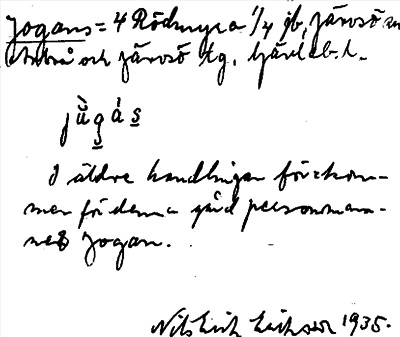 Jogans = 4 Rödmyra 1/4 gb, Järvsö sn
och Järvsö tg. Gävleb. l.
jùgás
I äldre handlingar förekom-
mer för denna gård personnam-
net Jogan.
Nils Erik Eriksson 1935.